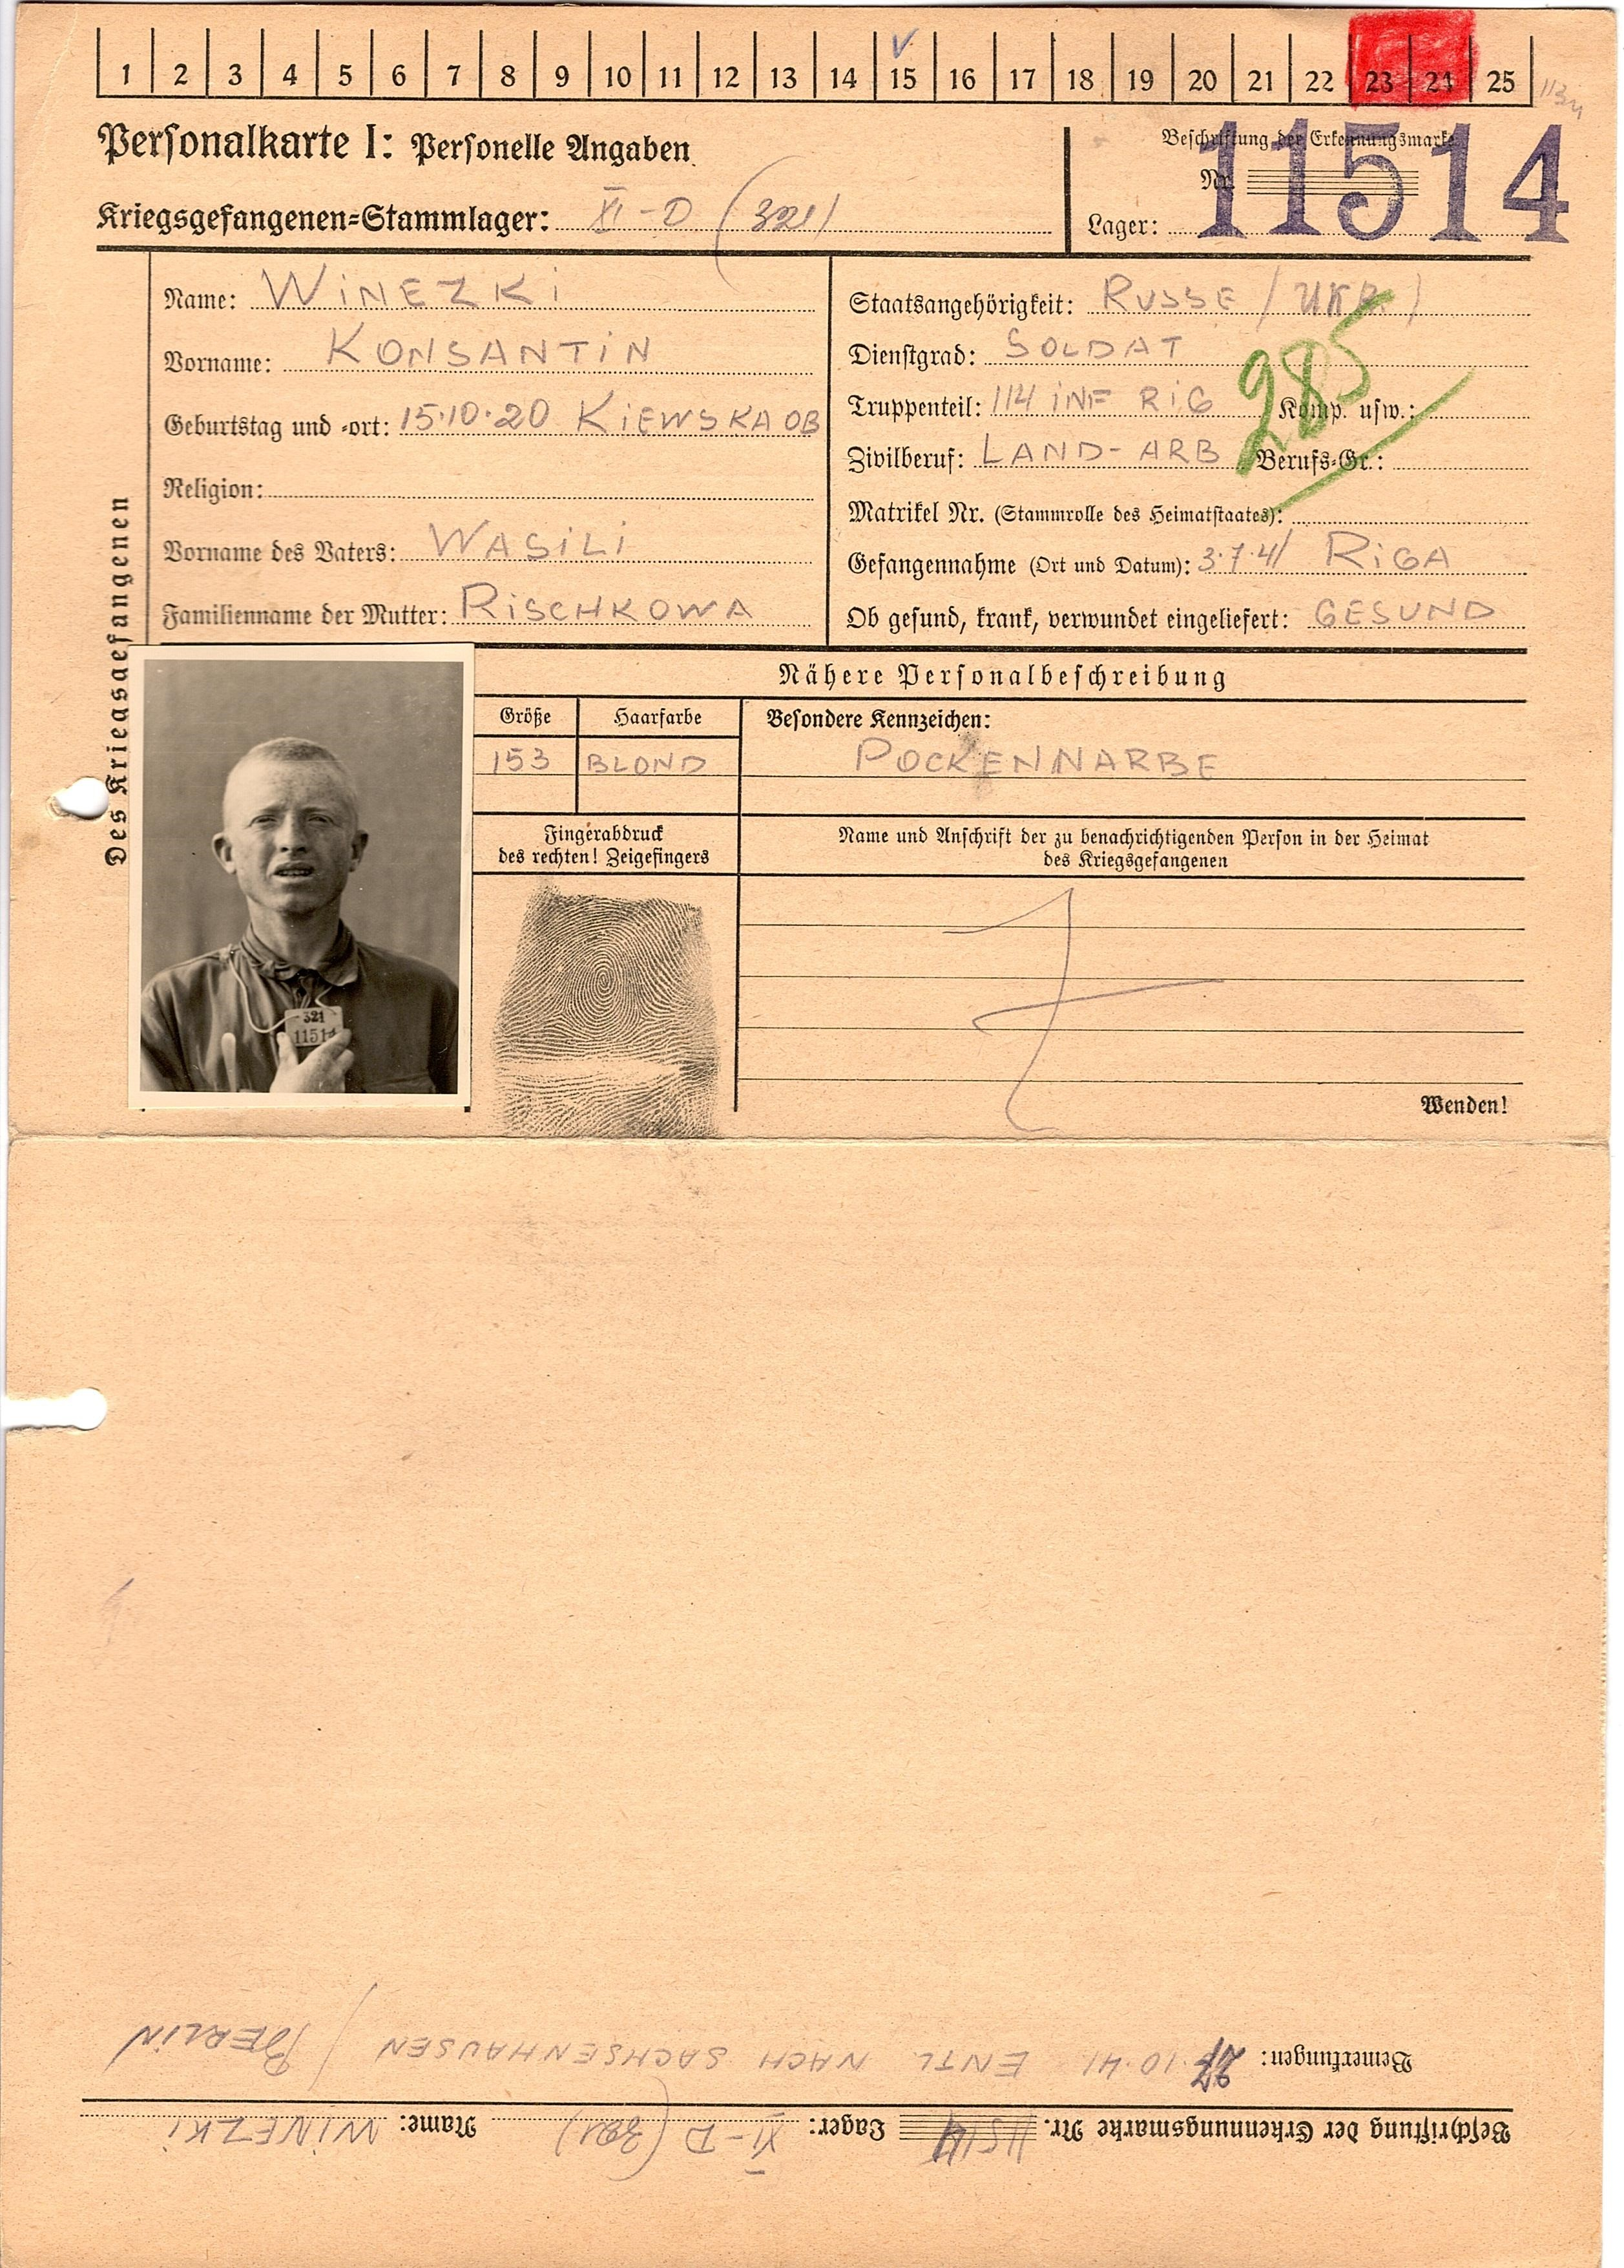 1 2 3 4 5 6 7 8 9 10 11 12 13 14 15 16 17 18 19 20 21 22 23 24 25
Personalkarte I: Personelle Angaben
Kriegsgefangenen=Stammlager: XI-D (321)
Beschriftung der Erkennungsmarke
Nr. 11514
Lager:
Des Kriegsgefangenen
Name: WINEZKI
Vorname: KONSANTIN
Geburtstag und =ort: 15.10.20 KIEWSKA OB
Religion:
Vorname des Vaters: WASILI
Familienname der Mutter: RISCHKOWA
Staatsangehörigkeit: RUSSE (UKR)
Dienstgrad: SOLDAT
Truppenteil: 114 INF RIG Komp. usw.:
285
Zivilberuf: LAND-ARB Berufs=Gr.:
Matrikel Nr. (Stammrolle des Heimatstaates):
Gefangennahme (Ort und Datum): 3.7.41 RIGA
Ob gesund, krank, verwundet eingeliefert: GESUND
Nähere Personalbeschreibung
Größe Haarfarbe Besondere Kennzeichen:
153 BLOND POCKENNARBE
Fingerabdruck
des rechten! Zeigefingers
Name und Anschrift der zu benachrichtigenden Person in der Heimat
des Kriegsgefangenen
321
11514
Wenden!
Beschriftung der Erkennungsmarke Nr. 11514 Lager: XI-D (321) Name: WINEZKI
Bemerkungen: 10.41 ENTL NACH SACHSENHAUSEN / BERLIN